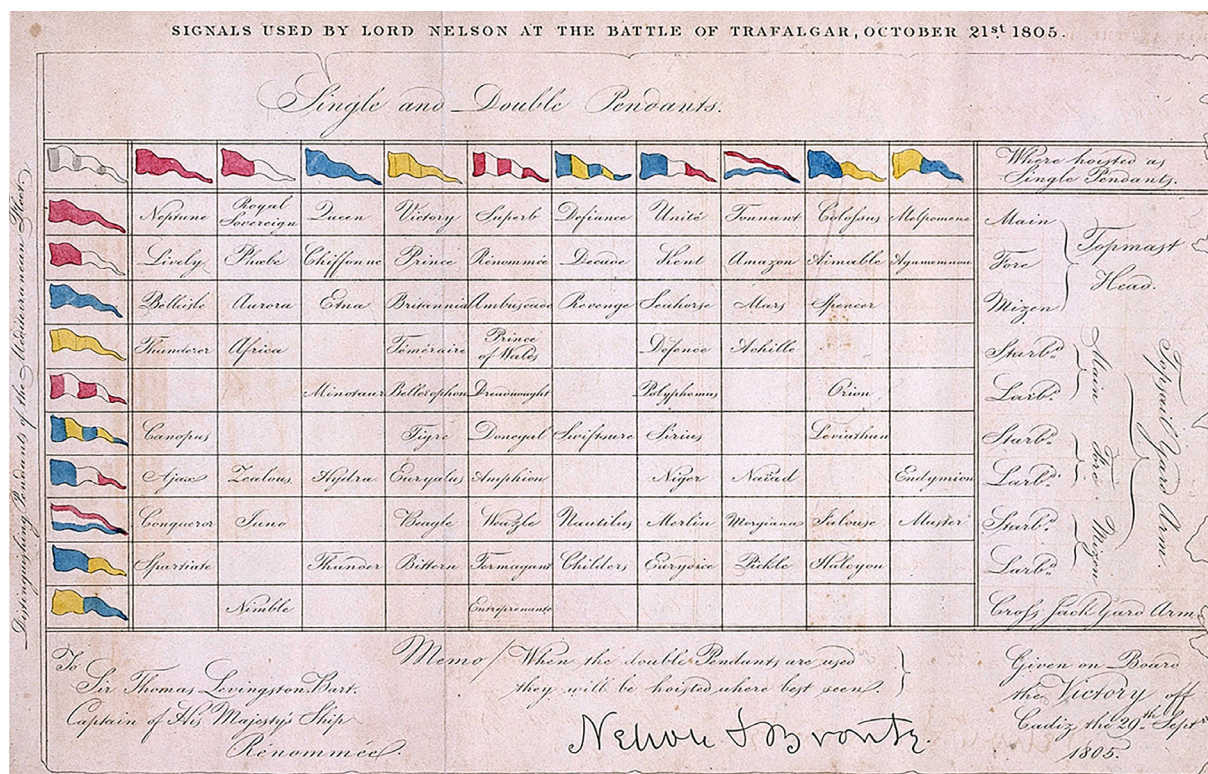 SIGNALS USED BY LORD NELSON AT THE BATTLE OF TRAFALGAR, OCTOBER 21st 1805.
Single and Double Pendants.
Distinguishing Pendants of the Mediterranean Fleet.
Where hoisted as
Single Pendants.
Neptune Royal Sovereign Queen Victory Superb Defiance Unité Tonnant Colossus Melpomene Main
Lively Phœbe Chiffonne Prince Rénommée Decade Kent Amazon Aimable Agamemnon Fore
Belleisle Aurora Etna Britannia Ambuscade Revenge Seahorse Mars Spencer Mizen
Topmast
Head.
Thunderer Africa Téméraire Prince of Wales Defence Achille Starbd
Minotaur Bellerophon Dreadnought Polyphemus Orion Larbd
Main
Canopus Tigre Donegal Swiftsure Sirius Leviathan Starbd
Ajax Zealous Hydra Euryalus Amphion Niger Naiad Endymion Larbd
Fore
Conqueror Juno Beagle Weazle Nautilus Merlin Morgiana Jalouse Muster Starbd
Spartiate Thunder Bittern Termagant Childers Eurydice Pickle Halcyon Larbd
Mizen
Topsail Yard Arm.
Nimble Entreprenante Cross Jack Yard Arm
To
Sir Thomas Levingston Bart.
Captain of His Majesty's Ship
Renommee.
Memo/ When the double Pendants are used
they will be hoisted where best seen.
Nelson & Bronte.
Given on Board
the Victory off
Cadiz the 29th Sept
1805.